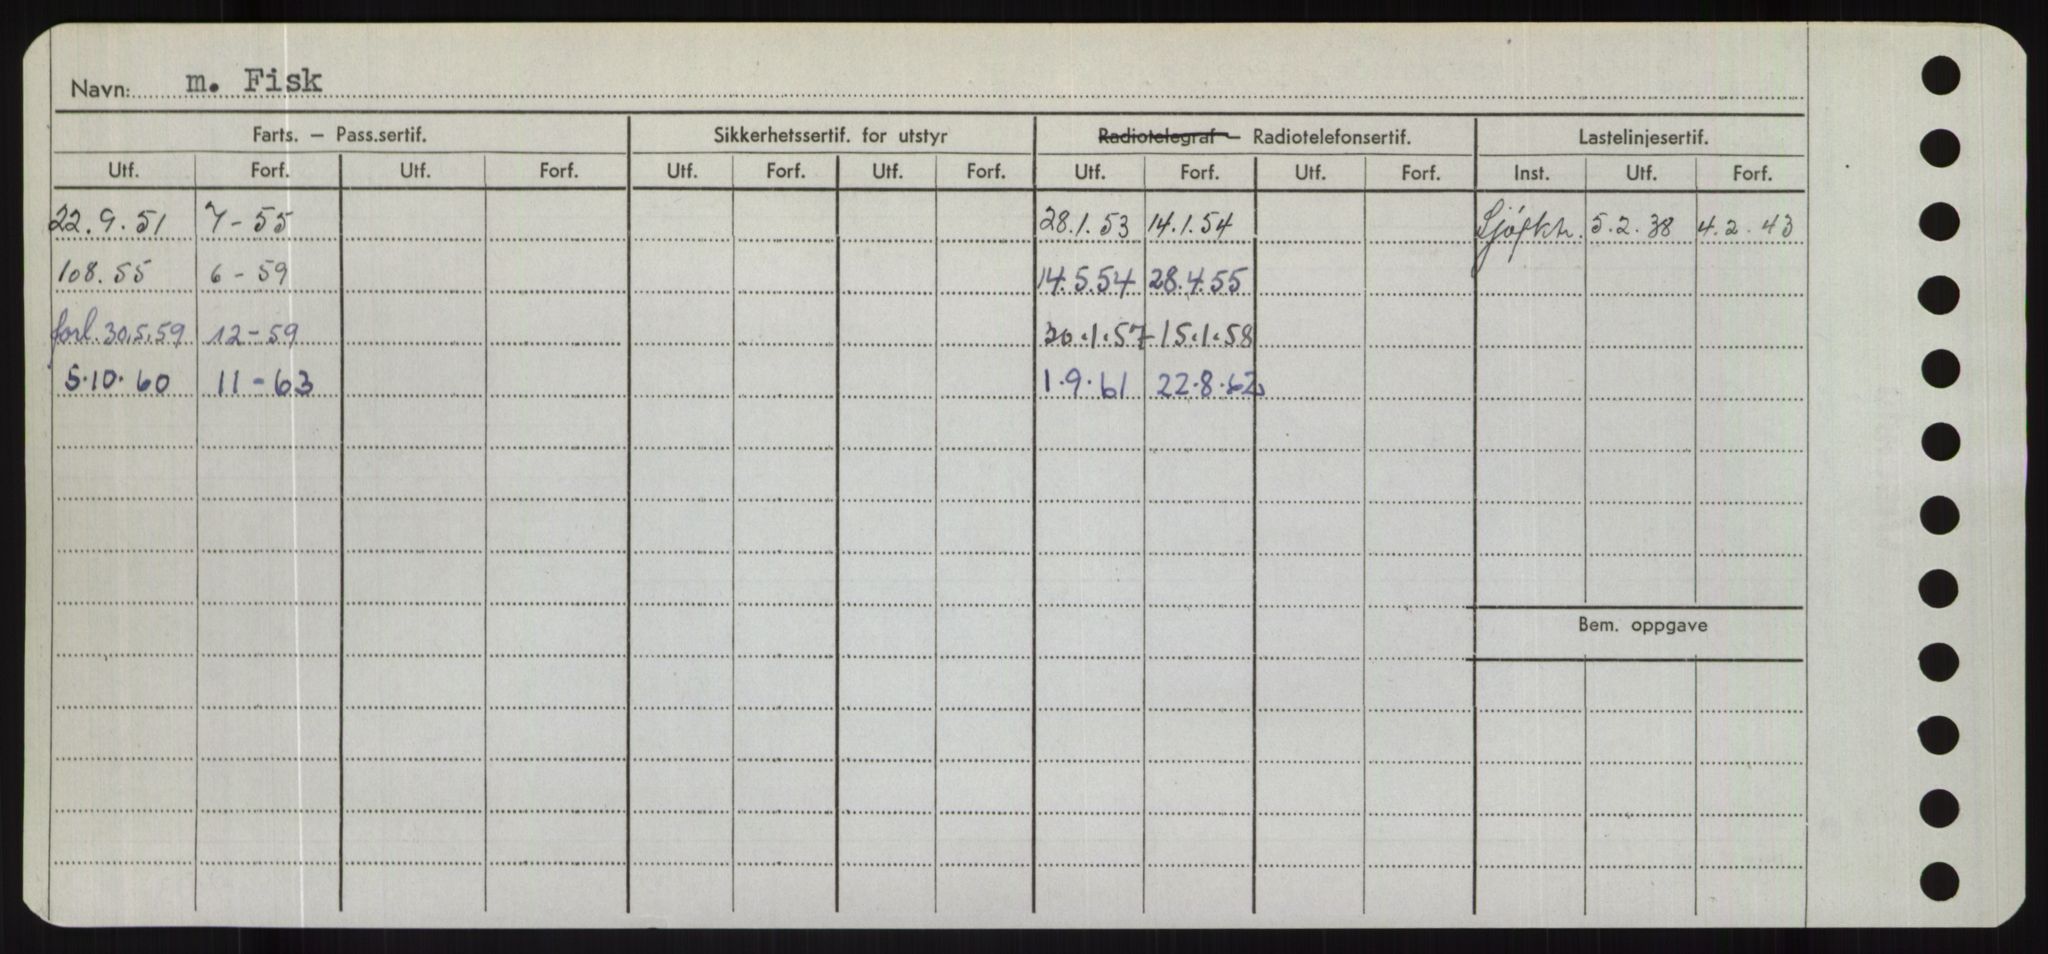 Navn: m. Fisk
Farts. – Pass.sertif. Sikkerhetssertif. for utstyr Radiotelegraf – Radiotelefonsertif. Lastelinjesertif.
Utf. Forf. Utf. Forf. Utf. Forf. Utf. Forf. Utf. Forf. Utf. Forf. Inst. Utf. Forf.
22.9.51 7-55 28.1.53 14.1.54 Sjøfktr. 5.2.38 4.2.43
108.55 6-59 14.5.54 28.4.55
forl. 30.5.59 12-59 30.1.57 - 15.1.58
5.10.60 11-63 1.9.61 22.8.62
Bem. oppgave